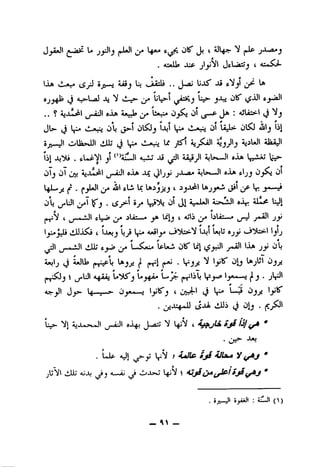 ومصدر علم لا جهالة ، بل كان يجيء معها من العلم والنور ما تخضع العقول
لحكمته ، وتتضاءل الأنوار عند طلعته .
ها نحن أولاء قد كدنا نصل .. فلنقف بنا وقفة يسيرة لنرى مبعث هذا
الضوء الذي كان يبدو حيناً ويختفي أحياناً من حيث لا يد لصاحبه في ظهوره
ولا في اختفائه : هل عسى أن يكون منبعثاً من طبيعة هذه النفس المحمدية ؟ ..
إذاً والله لكان خليقاً أن ينبعث منها أبداً ولكان أحق بأن ينبعث منها في حال
اليقظة العادية والروية الفكرية أكثر مما ينبعث منها في تلك اللحظات اليسيرة
حيث تغشاها هذه السحابة الرقيقة التي قد تشبه السِّنة(١) أو الإغماء . فلابد إذاً
أن يكون وراء هذه السحابة مصدر نوراني يمد هذه النفس المحمدية بين آن وآن
فيسمو بها عن أفق شعورها المحدود ، ويزودها بما شاء الله من العلوم . ثم يرسلها
إلينا محملة بهذه الشحنة العلمية إلى أن يلاقيها مرة أخرى . وكما آمن الناس بأن
نور القمر ليس مستفاداً من ذاته ، وإنما هو مستفاد من ضياء الشمس ، لأنهم
رأوا اختلاف نوره تابعاً أبداً لاختلاف مواقعه منها قرباً وبعداً ، فكذلك فليؤمنوا
بأن نور هذا القمر النبوي إنما كان شعاعاً منعكساً من ضوء تلك الشمس التي
يرون آثارها وإن كانوا لا يرونها . نعم إنهم لم يروها بأعينهم طالعة في رابعة
النهار . ولم يسمعوا صوتها بآذانهم جَرْساً مفهوماً وكلاماً يفقهه الناس ؛ ولكنهم
كانوا يرون قبساً منها في الجبين ، وكانوا يسمعون حسيسها حول الوجه
الكريم . وإن في ذلك لهدى للمهتدين .
* هي إذاً قوة خارجية ، لأنها لا تتصل بهذه النفس المحمدية إلا حيناً
بعد حين .
* وهي لا محالة قوة عالمة ؛ لأنها توحي إليه علماً .
* وهي قوة أعلى من قوته ؛ لأنها تحدث في نفسه وفي بدنه تلك الآثار
(١) السِّنة : الغفوة اليسيرة .
— ٩١ —